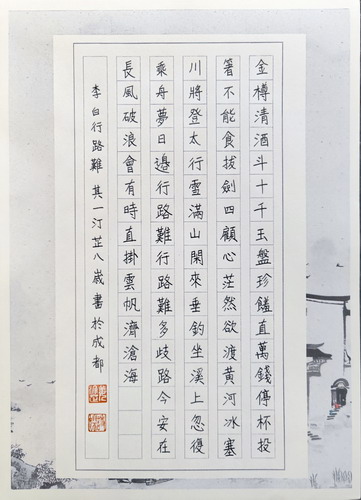 金樽清酒斗十千玉盤珍饈直萬錢停杯投
箸不能食拔劍四顧心茫然欲渡黃河冰塞
川將登太行雪滿山閑來垂釣坐溪上忽復
乘舟夢日邊行路難行路難多歧路今安在
長風破浪會有時直掛雲帆濟滄海
李白行路難 其一汀芷八歲書於成都